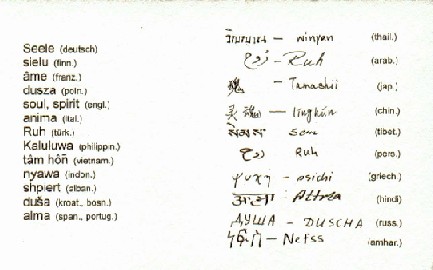 Seele (deutsch)
sielu (finn.)
âme (franz.)
dusza (poln.)
soul, spirit (engl.)
anima (ital.)
Ruh (türk.)
Kaluluwa (philippin.)
tâm hôn (vietnam.)
nyawa (indon.)
shpiert (alban.)
duša (kroat., bosn.)
alma (span., portug.)
วิญญาณ - winyen (thail.)
روح - Ruh (arab.)
魂 - Tamashii (jap.)
灵魂 - linghún (chin.)
sem (tibet.)
روح Ruh (pers.)
ψυχη - psichi (griech.)
आत्मा : Attma (hindi)
ДУША - DUSCHA (russ.)
ነፍስ - Nefss (amhar.)